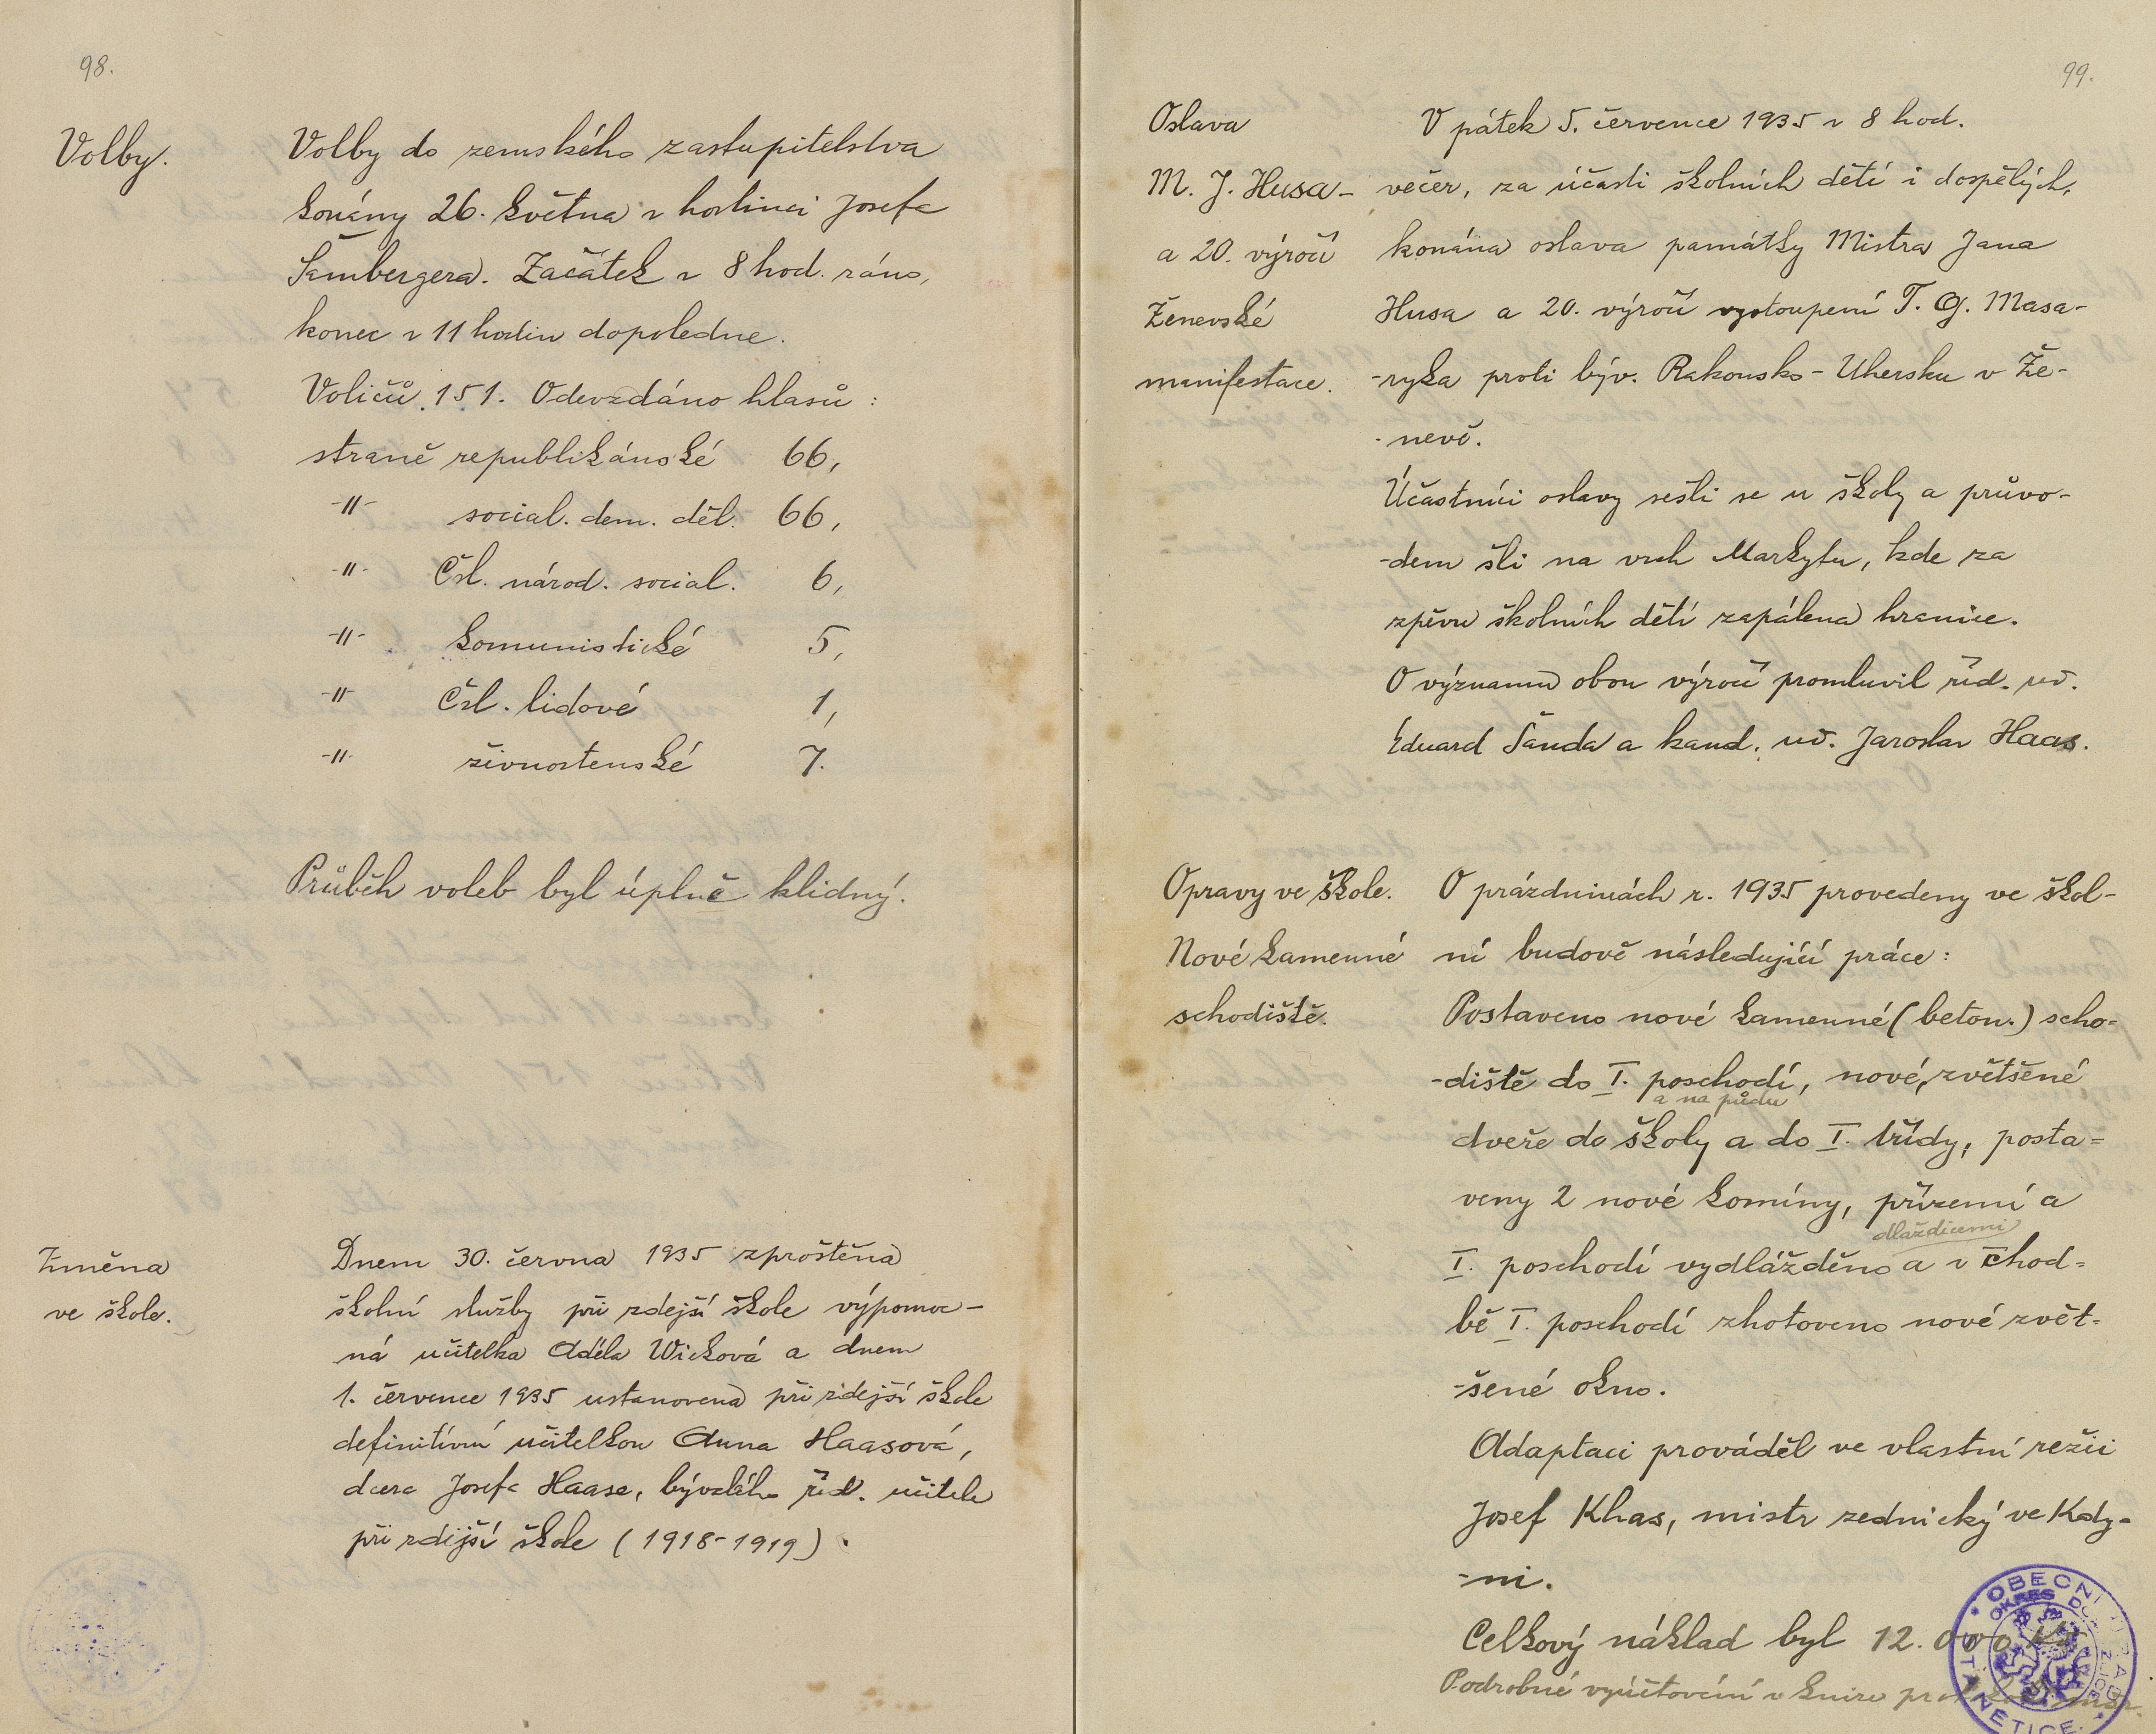 98.
Volby.
Volby do zemského zastupitelstva
konány 26. května v hostinci Josefa
Šambergera. Začátek v 8 hod. ráno,
konec v 11 hodin dopoledne.
Voličů 151. Odevzdáno hlasů :
straně republikánské 66,
-"- social. dem. děl. 66,
-"- Čsl. národ. social. 6,
-"- komunistické 5,
-"- Čsl. lidové 1,
-"- živnostenské 7.
Průběh voleb byl úplně klidný.
Změna
ve škole.
Dnem 30. června 1935 zproštěna
školní služby při zdejší škole výpomoc-
ná učitelka Adéla Wicková a dnem
1. července 1935 ustanovena při zdejší škole
definitivní učitelkou Anna Haasová,
dcera Josefa Haase, bývalého říd. učitele
při zdejší škole (1918-1919).
99.
Oslava
M. J. Husa-
a 20. výročí
Ženevské
manifestace.
V pátek 5. července 1935 v 8 hod.
večer, za účasti školních dětí i dospělých,
konána oslava památky Mistra Jana
Husa a 20. výročí vystoupení T. G. Masa-
-ryka proti býv. Rakousko-Uhersku v Že-
-nevě.
Účastníci oslavy sešli se u školy a průvo-
-dem šli na vrch Markytu, kde za
zpěvu školních dětí zapálena hranice.
O významu obou výročí promluvil říd. uč.
Eduard Šanda a kand. uč. Jaroslav Haas.
Opravy ve škole.
Nové kamenné
schodiště.
O prázdninách r. 1935 provedeny ve škol-
ní budově následující práce :
Postaveno nové kamenné (beton.) scho-
-diště do I. poschodí, nové, zvětšené
a na půdu
dveře do školy a do I. třídy, posta-
veny 2 nové komíny, přízemí a
dlaždicemi
I. poschodí vydlážděno a v chod-
bě I. poschodí zhotoveno nové zvět-
-šené okno.
Adaptaci prováděl ve vlastní režii
Josef Khas, mistr zednický ve Kdy-
-ni.
Celkový náklad byl 12.000 Kč
Podrobné vyúčtování v knize
OBECNÍ
OKRES